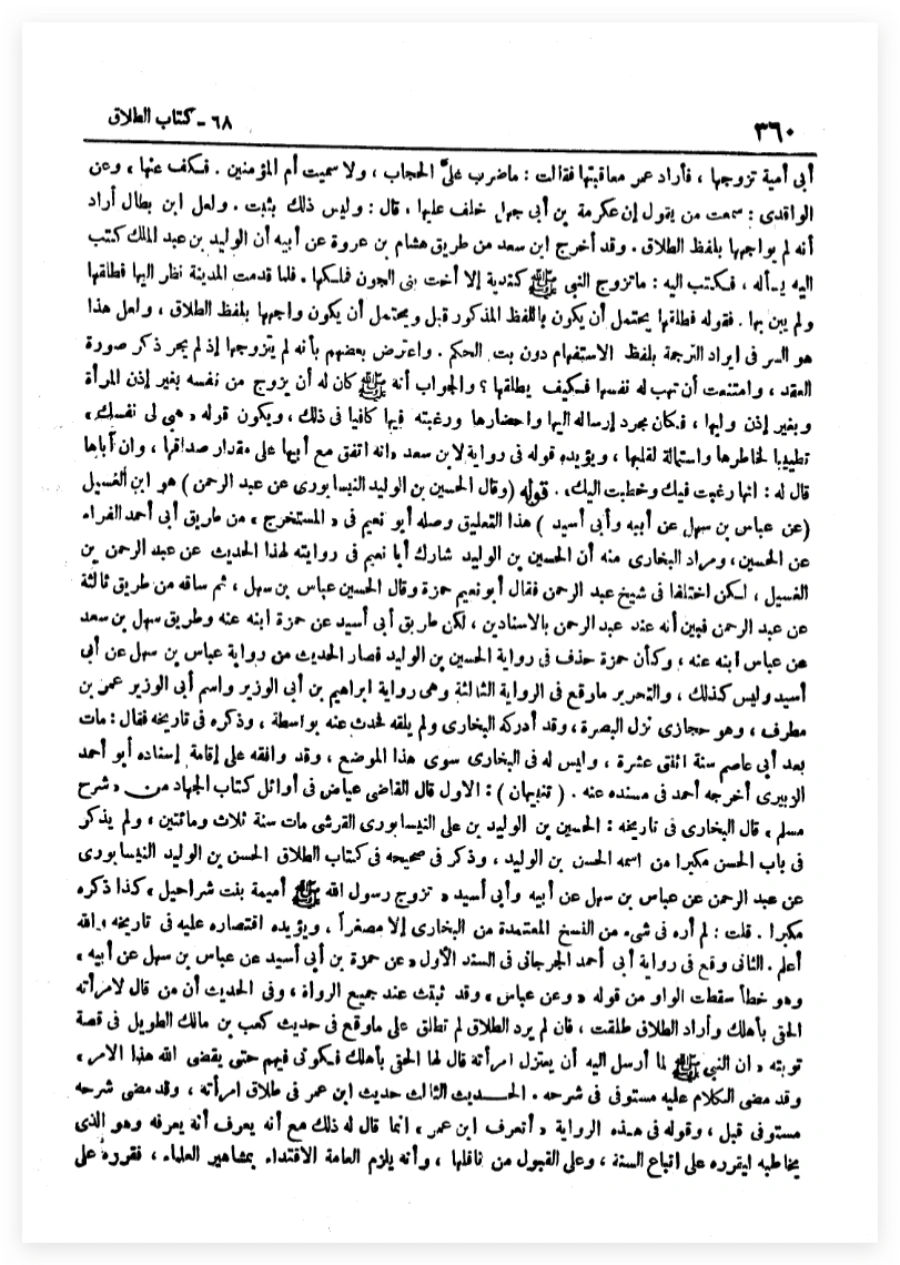 ٣٦٠
٦٨ - كتاب الطلاق
أبى أمية تزوجها ، فأراد عمر معاقبتها فقالت : ماضرب علىَّ الحجاب ، ولا سميت أم المؤمنين . فكف عنها ، وعن
الواقدى : سمعت من يقول إن عكرمة بن أبى جهل خلف عليها ، قال : وليس ذلك بثبت . ولعل ابن بطال أراد
أنه لم يواجهها بلفظ الطلاق . وقد أخرج ابن سعد من طريق هشام بن عروة عن أبيه أن الوليد بن عبد الملك كتب
اليه يسأله ، فكتب اليه : ماتزوج النبي ﷺ كندية إلا أخت بنى الجون فملكها . فلما قدمت المدينة نظر اليها فطلقها
ولم يبن بها . فقوله فطلقها يحتمل أن يكون باللفظ المذكور قبل ويحتمل أن يكون واجهها بلفظ الطلاق ، ولعل هذا
هو السر فى ايراد الترجمة بلفظ الاستفهام دون بت الحكم . واعترض بعضهم بأنه لم يتزوجها إذ لم يجر ذكر صورة
العقد ، وامتنعت أن تهب له نفسها فكيف يطلقها ؟ والجواب أنه ﷺ كان له أن يزوج من نفسه بغير إذن المرأة
وبغير إذن وليها ، فكان مجرد إرساله اليها واحضارها ورغبته فيها كافيا فى ذلك ، ويكون قوله « هبى لى نفسك »
تطييبا لخاطرها واستمالة لقلبها ، ويؤيده قوله فى رواية لابن سعد «انه اتفق مع أبيها على مقدار صداقها ، وان أباها
قال له : انها رغبت فيك وخطبت اليك» . قوله (وقال الحسين بن الوليد النيسابورى عن عبد الرحمن) هو ابن الغسيل
(عن عباس بن سهل عن أبيه وأبى أسيد ) هذا التعليق وصله أبو نعيم فى « المستخرج » من طريق أبى أحمد الفراء
عن الحسين ، ومراد البخارى منه أن الحسين بن الوليد شارك أبا نعيم فى روايته لهذا الحديث عن عبد الرحمن بن
الغسيل ، لكن اختلفا فى شيخ عبد الرحمن فقال أبو نعيم حمزة وقال الحسين عباس بن سهل ، ثم ساقه من طريق ثالثة
عن عبد الرحمن فبين أنه عند عبد الرحمن بالاسنادين ، لكن طريق أبى أسيد عن حمزة ابنه عنه وطريق سهل بن سعد
عن عباس ابنه عنه ، وكأن حمزة حذف فى رواية الحسين بن الوليد فصار الحديث من رواية عباس بن سهل عن أبى
أسيد وليس كذلك ، والتحرير ماوقع فى الرواية الثالثة وهى رواية ابراهيم بن أبى الوزير واسم أبى الوزير عمر بن
مطرف ، وهو حجازى نزل البصرة ، وقد أدركه البخارى ولم يلقه فحدث عنه بواسطة ، وذكره فى تاريخه فقال : مات
بعد أبى عاصم سنة اثنتى عشرة ، وليس له فى البخارى سوى هذا الموضع ، وقد وافقه على إقامة إسناده أبو أحمد
الزبيرى أخرجه أحمد فى مسنده عنه . ( تنبيهان ) : الاول قال القاضى عياض فى أوائل كتاب الجهاد من « شرح
مسلم » قال البخارى فى تاريخه : الحسين بن الوليد بن على النيسابورى القرشى مات سنة ثلاث ومائتين ، ولم يذكر
فى باب الحسن مكبرا من اسمه الحسن بن الوليد ، وذكر فى صحيحه فى كتاب الطلاق الحسن بن الوليد النيسابورى
عن عبد الرحمن عن عباس بن سهل عن أبيه وأبى أسيد « تزوج رسول الله ﷺ أميمة بنت شراحيل » كذا ذكره
مكبرا . قلت : لم أره فى شىء من النسخ المعتمدة من البخارى إلا مصغراً ، ويؤيده اقتصاره عليه فى تاريخه والله
أعلم . الثانى وقع فى رواية أبى أحمد الجرجانى فى السند الأول « عن حمزة بن أبى أسيد عن عباس بن سهل عن أبيه »
وهو خطأ سقطت الواو من قوله « وعن عباس » وقد ثبتت عند جميع الرواة ، وفى الحديث أن من قال لامرأته
الحقى بأهلك وأراد الطلاق طلقت ، فان لم يرد الطلاق لم تطلق على ماوقع فى حديث كعب بن مالك الطويل فى قصة
توبته « ان النبي ﷺ لما أرسل اليه أن يعتزل امرأته قال لها الحقى بأهلك فكونى فيهم حتى يقضى الله هذا الامر »
وقد مضى الكلام عليه مستوفى فى شرحه . الحـديث الثالث حديث ابن عمر فى طلاق امرأته ، وقد مضى شرحه
مستوفى قبل ، وقوله فى هذه الرواية « أتعرف ابن عمر » انما قال له ذلك مع أنه يعرف أنه يعرفه وهو الذى
يخاطبه ليقرره على اتباع السنة ، وعلى القبول من ناقلها ، وأنه يلزم العامة الاقتداء بمشاهير العلماء ، فقرره على